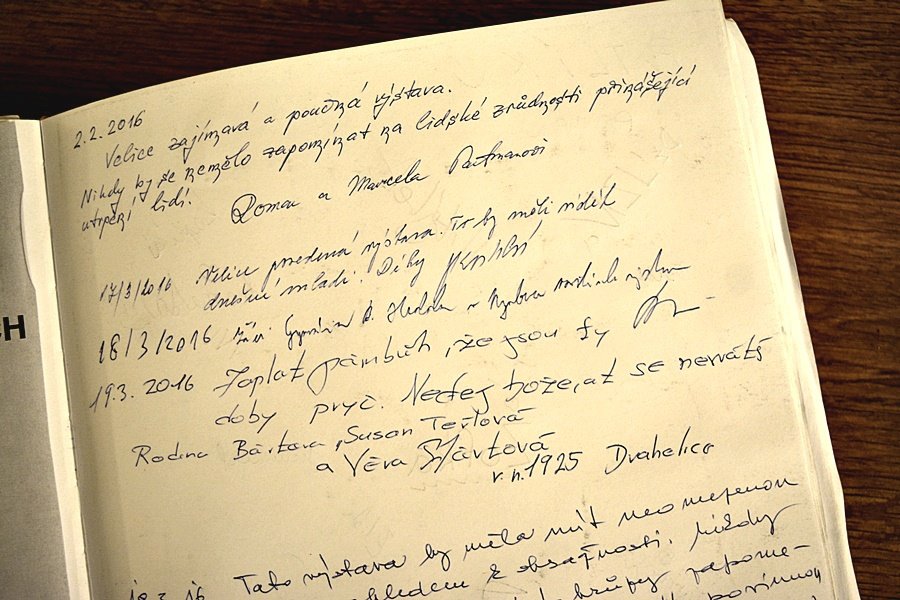 CH
2.2. 2016
Velice zajímavá a poučná výstava.
Nikdy by se nemělo zapomínat na lidské zrůdnosti přinášející
utrpení lidí.
Roman a Marcela
17/3/2016 Velice povedená výstava. To by měli vidět
dnešní mladí. Díky
18/3/2016
19.3. 2016 Zaplať pámbůh, že jsou ty
doby pryč. Nedej bože, at se nevrátí
Rodina Bártova, Susan Terlová
a Věra Bártová
r.n. 1925 Drahelice
19.3.16 Tato výstava by měla mít neomezenou
ohledem k obsažnosti. Nikdy
hrůzy zapome-
povinnou